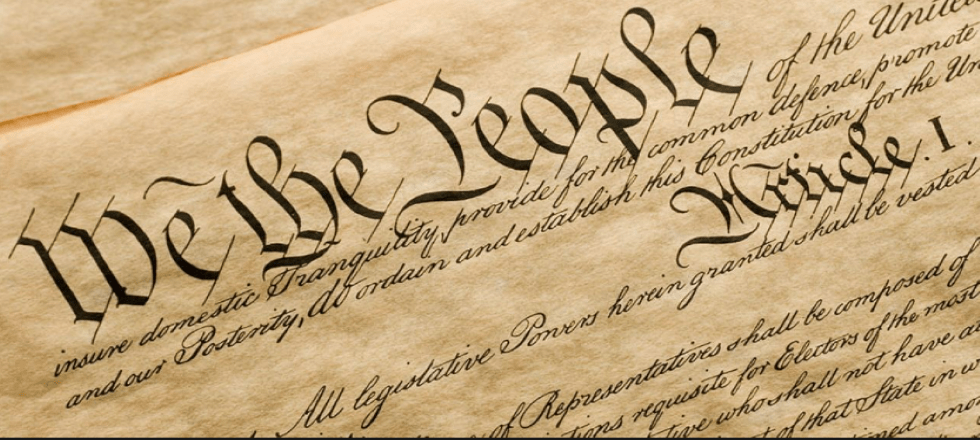 We the People of the United
insure domestic Tranquility, provide for the common defence, promote
and our Posterity, do ordain and establish this Constitution for the Un
Article. I.
All legislative Powers herein granted shall be vested
of Representatives shall be composed of
tions requisite for Electors of the most
tive who shall not have a
of that State in w